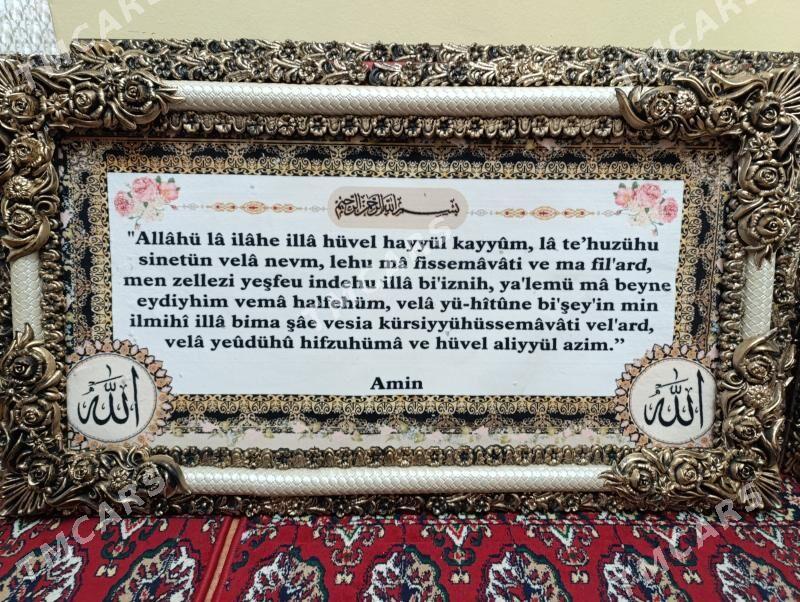 بسم الله الرحمن الرحيم
"Allâhü lâ ilâhe illâ hüvel hayyül kayyûm, lâ te’huzühu
sinetün velâ nevm, lehu mâ fissemâvâti ve ma fil'ard,
men zellezi yeşfeu indehu illâ bi'iznih, ya'lemü mâ beyne
eydiyhim vemâ halfehüm, velâ yü-hîtûne bi'şey'in min
ilmihî illâ bima şâe vesia kürsiyyühüssemâvâti vel'ard,
velâ yeûdühû hifzuhümâ ve hüvel aliyyül azim.”
Amin
الله
الله
TMCARS